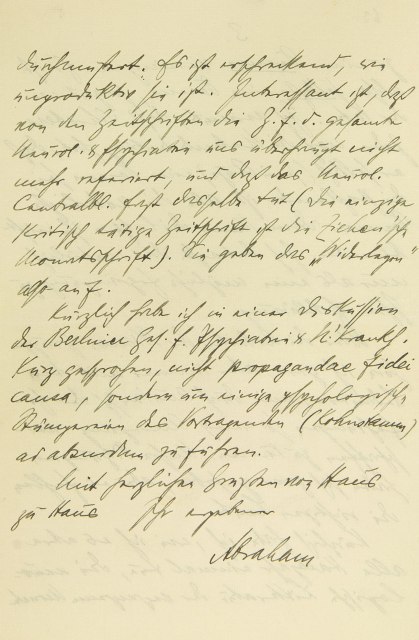 durchmustert. Es ist erschreckend, wie
unproduktiv sie ist. Interessant ist, daß
von den Zeitschriften die Z. f. d. gesamte
Neurol. & Psychiatrie uns überhaupt nicht
mehr referiert, und daß das Neurol.
Centralbl. fast dasselbe tut (Die einzige
kritisch tätige Zeitschrift ist die Ziehen'sche
Monatsschrift). Sie geben das „Widerlegen"
also auf.
Kürzlich habe ich in einer Diskussion
der Berliner Ges. f. Psychiatrie & N. Krankh.
kurz gesprochen, nicht propagandae fidei
causa, sondern um einige psychologische
des Vortragenden (Kohnstamm)
ad absurdum zu führen.
Mit herzlichen Grüßen von Haus
zu Haus Ihr ergebener
Abraham